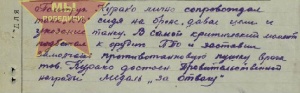 Курако лично сопровождал
танки сидя на броне, давал цели и
указание танку. В самый критический момент
подполз к орудию ПТО и заставил
замолчать противотанковую пушку врага
тов Курако достоин Правительственной
награды Медаль "за Отвагу"